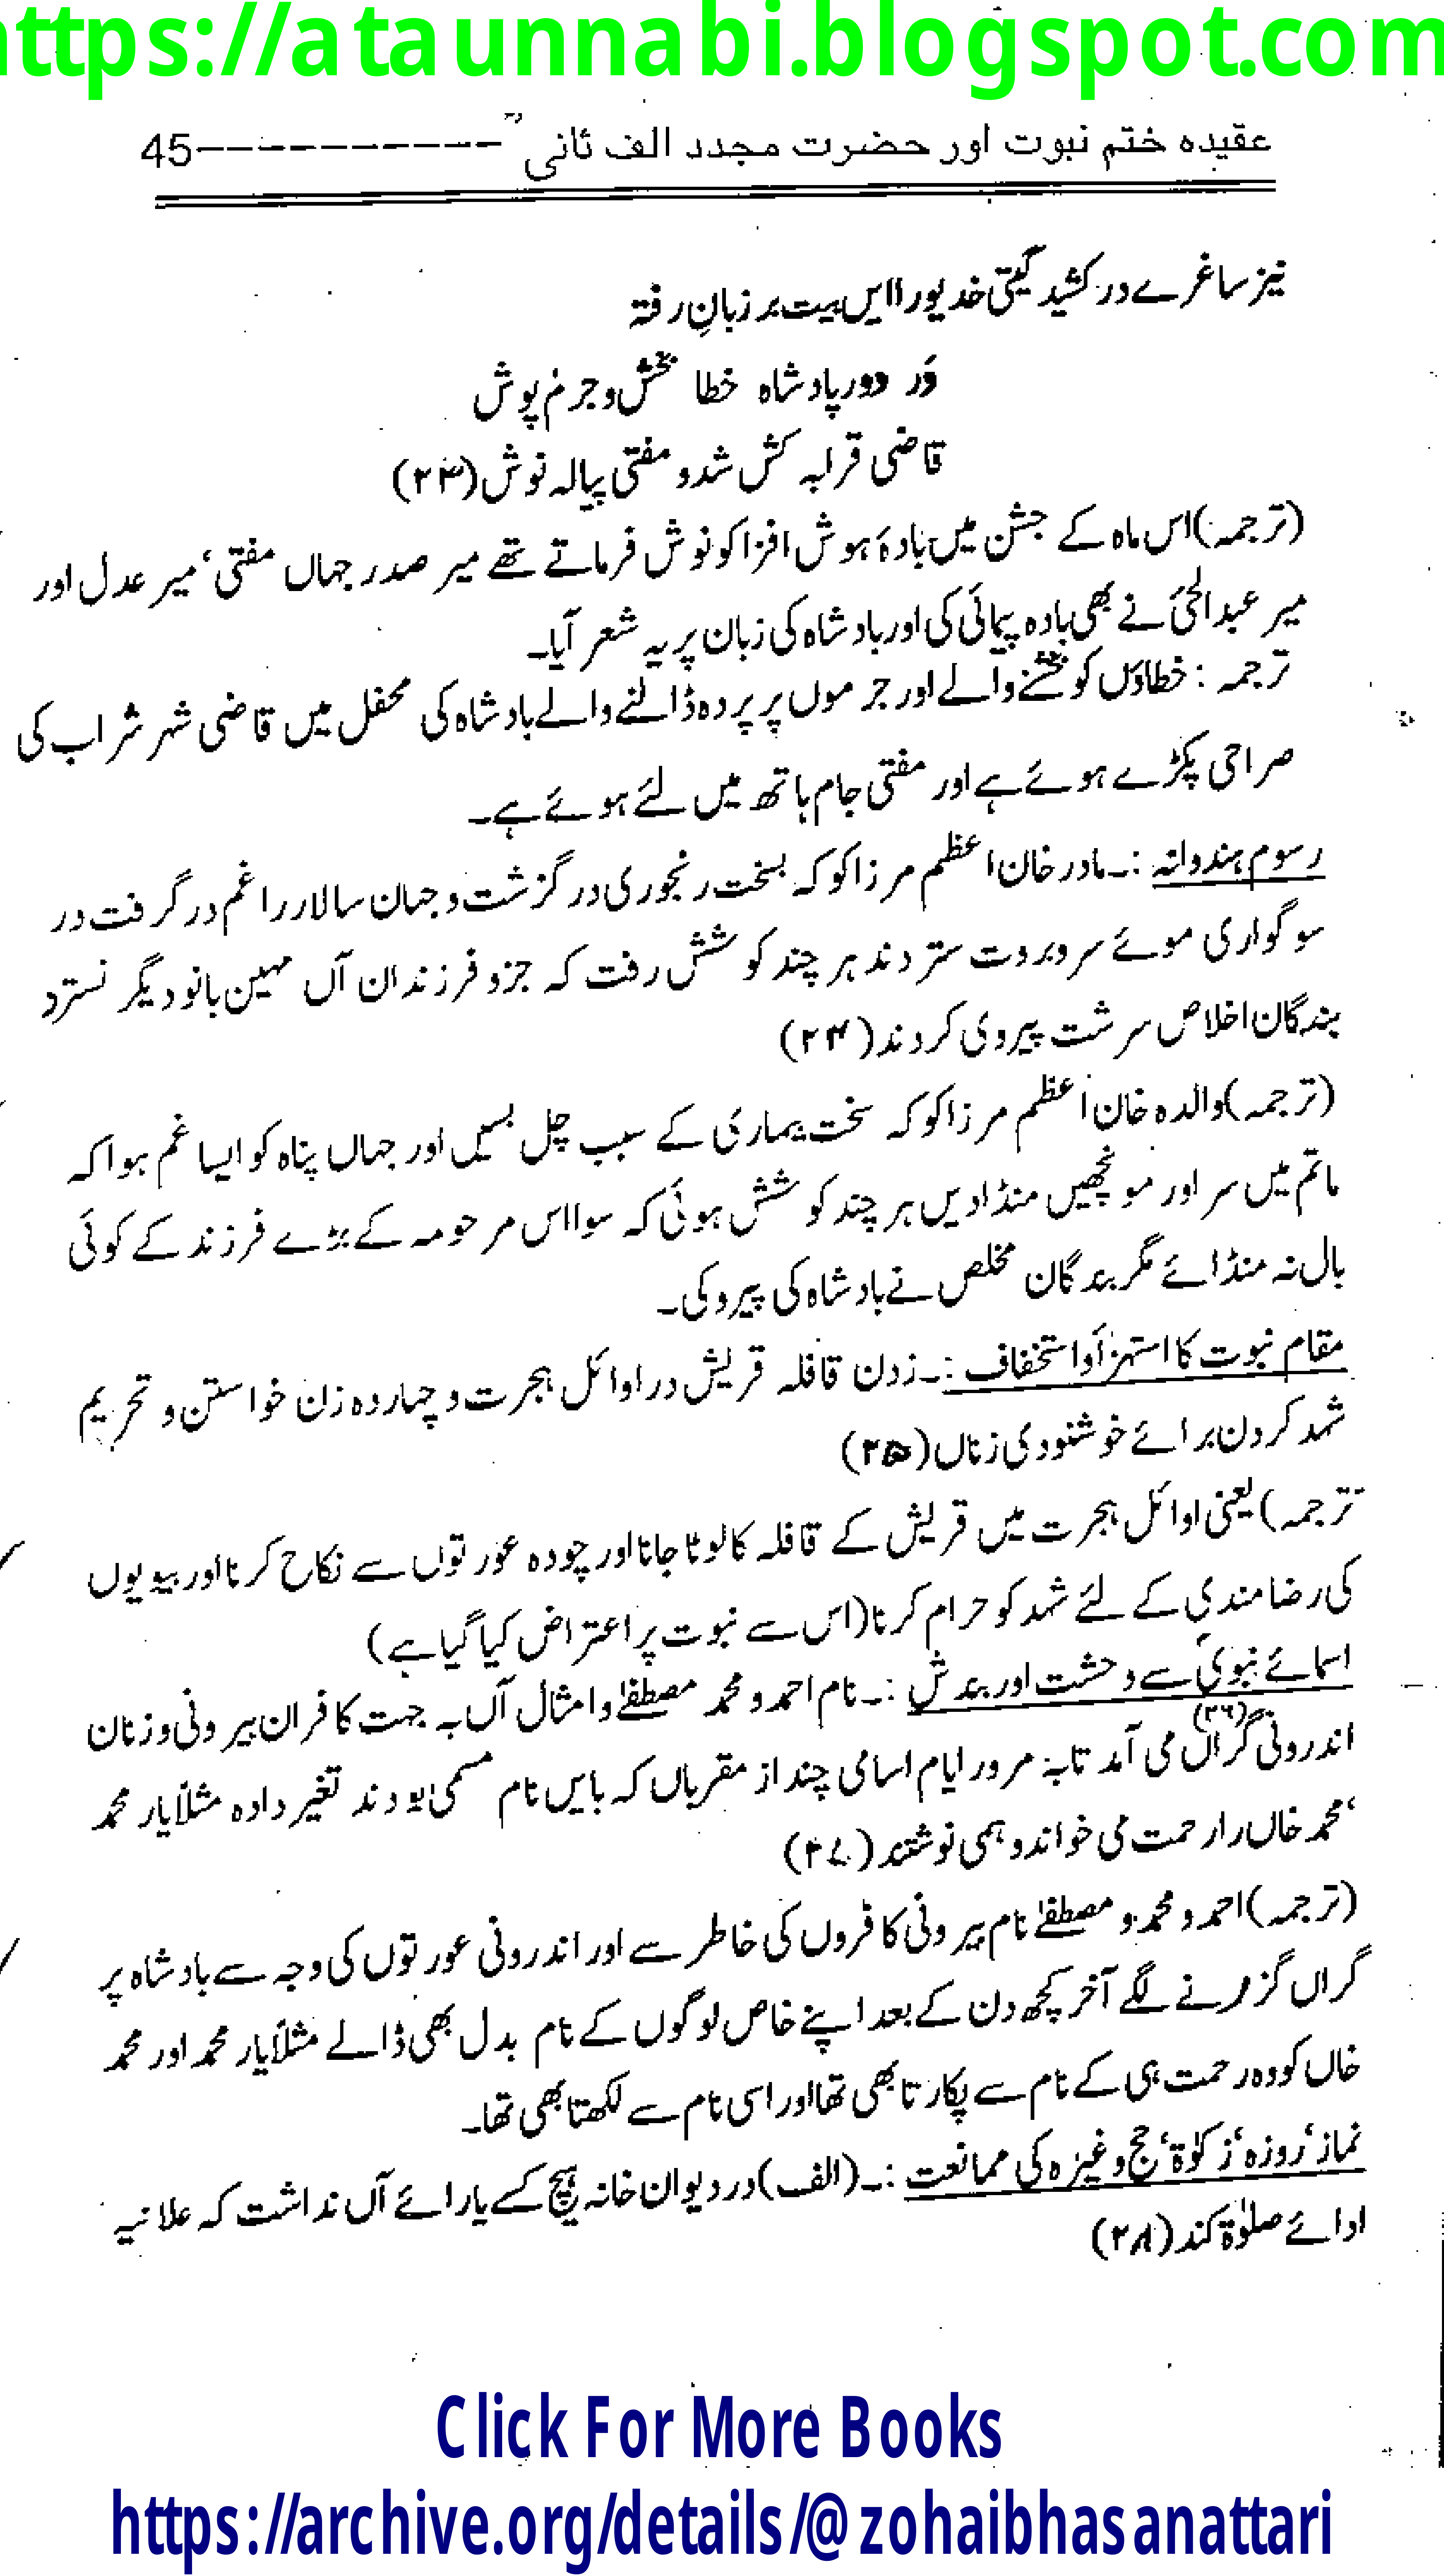 https://ataunnabi.blogspot.com
عقیدہ ختم نبوت اور حضرت مجدد الف ثانی ؒ ----------45
نیز ساغرے در کشید گیتی خدیورا ایں بیت بر زبانِ رفتہ
دَر دور پادشاہ خطا بخش و جرم پوش
قاضی قرابہ کش شد و مفتی پیالہ نوش (۲۳)
(ترجمہ) اس ماہ کے جشن میں بادۂ ہوش افزا کو نوش فرماتے تھے میر صدر جہاں مفتی، میر عدل اور
میر عبدالحئی نے بھی بادہ پیمائی کی اور بادشاہ کی زبان پر یہ شعر آیا۔
ترجمہ : خطاؤں کو بخشنے والے اور جرموں پر پردہ ڈالنے والے بادشاہ کی محفل میں قاضی شہر شراب کی
صراحی پکڑے ہوئے ہے اور مفتی جام ہاتھ میں لئے ہوئے ہے۔
رسوم ہندوانہ :۔ مادر خان اعظم مرزا کوکہ بسخت رنجوری در گزشت و جہان سالار را غم در گرفت در
سوگواری موئے سر و بروت ستردند ہر چند کوشش رفت کہ جزو فرزندان آں مہین بانو دیگر نسترد
بندگان اخلاص سرشت پیروی کردند (۲۴)
(ترجمہ) والدہ خان اعظم مرزا کوکہ سخت بیماری کے سبب چل بسیں اور جہاں پناہ کو ایسا غم ہوا کہ
ماتم میں سر اور مونچھیں منڈا دیں ہر چند کوشش ہوئی کہ سوا اس مرحومہ کے بڑے فرزند کے کوئی
بال نہ منڈائے مگر بندگان مخلص نے بادشاہ کی پیروکی۔
مقام نبوت کا استہزأ و استخفاف :۔ زدن قافلہ قریش در اوائل ہجرت و چہاردہ زن خواستن و تحریم
شہد کردن برائے خوشنودی زناں (۲۵)
ترجمہ) یعنی اوائل ہجرت میں قریش کے قافلہ کا لوٹا جانا اور چودہ عورتوں سے نکاح کرنا اور بیویوں
کی رضامندی کے لئے شہد کو حرام کرنا (اس سے نبوت پر اعتراض کیا گیا ہے)
اسمائے نبویؐ سے وحشت اور بندش :۔ نام احمد و محمد مصطفےٰ و امثال آں بہ جہت کافران بیرونی و زنان
اندرونی (۲۶) گراں می آمد تا بہ مرور ایام اسامی چند از مقرباں کہ بایں نام مسمی بودند تغیر دادہ مثلاً یار محمد
، محمد خاں را رحمت می خواند و ہمی نوشتند (۲۷)
(ترجمہ) احمد و محمد و مصطفےٰ نام بیرونی کافروں کی خاطر سے اور اندرونی عورتوں کی وجہ سے بادشاہ پر
گراں گزرنے لگے آخر کچھ دن کے بعد اپنے خاص لوگوں کے نام بدل بھی ڈالے مثلاً یار محمد اور محمد
خاں کو وہ رحمت ہی کے نام سے پکارتا بھی تھا اور اسی نام سے لکھتا بھی تھا۔
نماز، روزہ، زکوٰۃ، حج وغیرہ کی ممانعت :۔ (الف) در دیوان خانہ ہیچ کسے یارائے آں نداشت کہ علانیہ
ادائے صلوٰۃ کند (۲۸)
Click For More Books
https://archive.org/details/@zohaibhasanattari